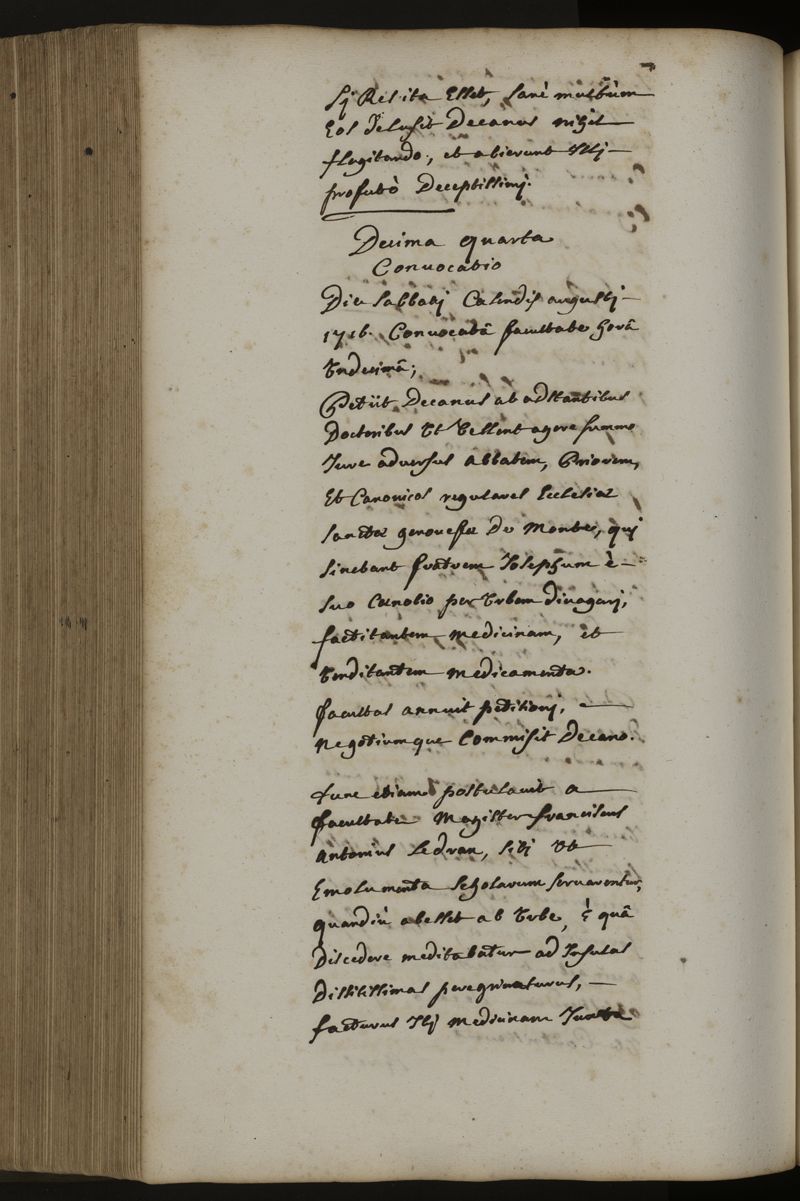 sj Res ita Esset, sanè multùm
Eos Delusit Decanus nihil
flagitando, et abierunt Illj
profectò Deceptissimj.
Decima quarta
Convocatio
Die sabbatj Calendis augustj
1716. Convocatâ facultate horâ
Undecimâ;
Petiit Decanus ab adstantibus
Doctoribus Ut Vellent agere summo
Jure adversus Abbatem, Priorem,
Et Canonicos regulares Ecclesiae
sanctae genovefae De Monte, quj
sinebant fratrem Josephum è
suo Cœnobio per Urbem divagarj,
factitantem medicinam, et
Venditantem medicamenta.
facultas annuit petitionj,
negotiumque Commisit Decano.
tunc etiam postulavit a
facultate Magister franciscus
Antonius Ledran, sibj Ut
Emolumenta scholarum servarentur,
quandiù abesset ab Urbe, è quâ
Discedere meditabatur ad Insulas
Dissitissimas peregrinaturus,
facturus Ibj medicinam Juxta